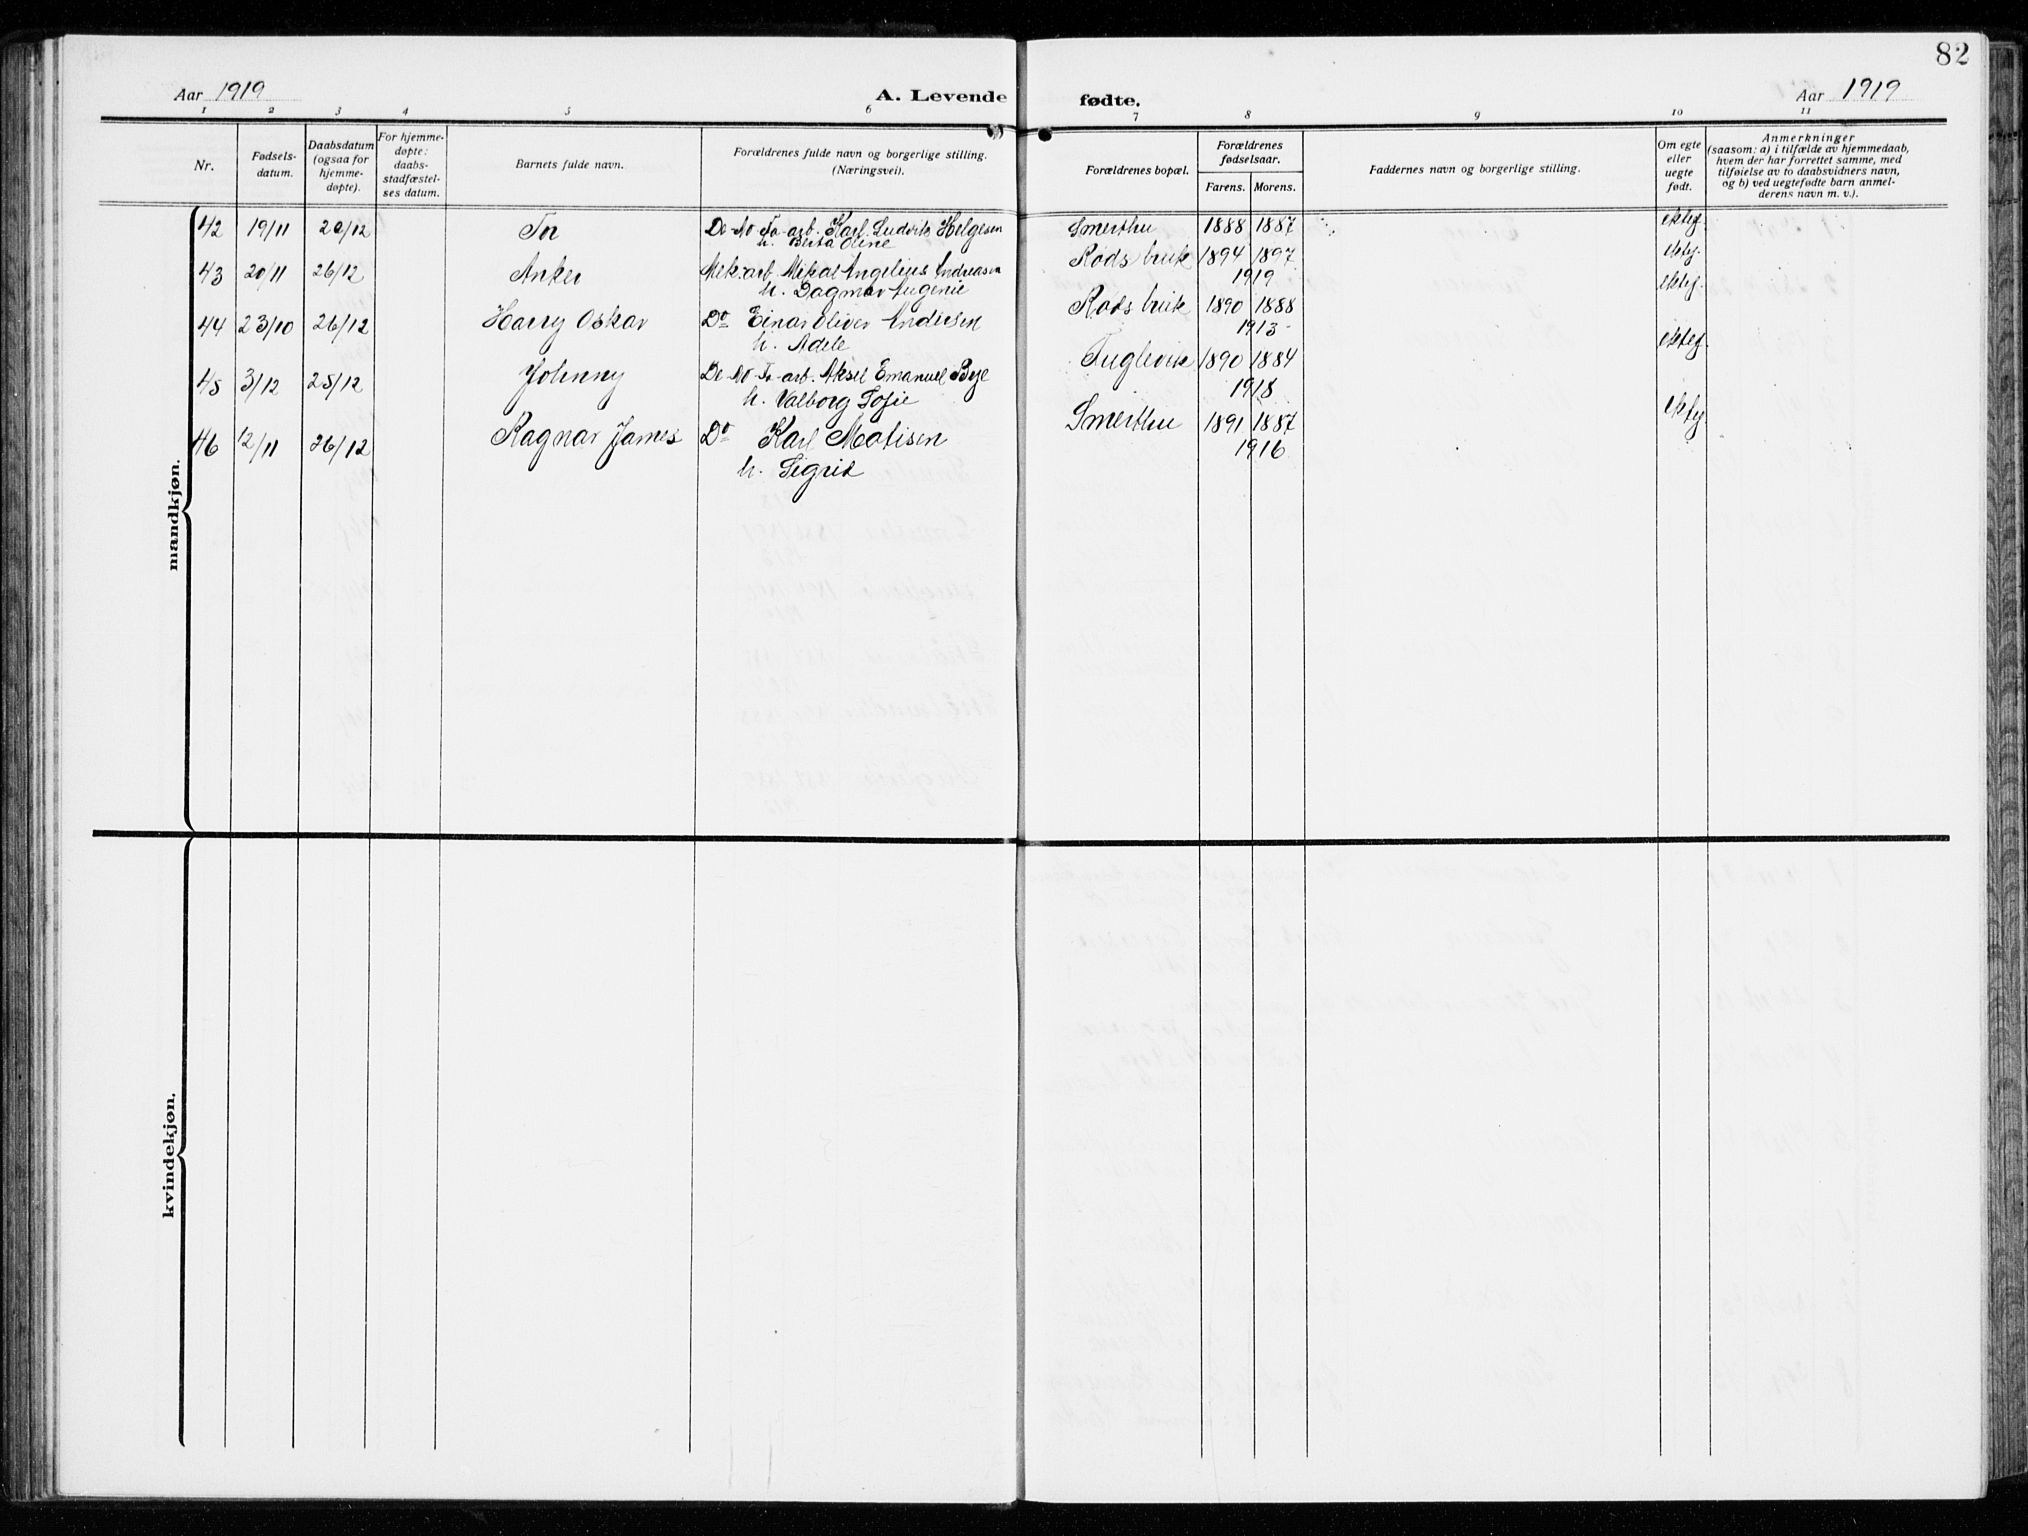 82
Aar 1919
A. Levende
fødte.
Aar 1919
1 2 3 4 5 6 7 8 9 10 11
Nr.
Fødsels-
datum.
Daabsdatum
(ogsaa for
hjemme-
døpte).
For hjemme-
døpte:
daabs-
stadfæstel-
ses datum.
Barnets fulde navn.
Forældrenes fulde navn og borgerlige stilling.
(Næringsvei).
Forældrenes bopæl.
Forældrenes
fødselsaar.
Farens. Morens.
Faddernes navn og borgerlige stilling.
Om egte
eller
uegte
født.
Anmerkninger
(saasom: a) i tilfælde av hjemmedaab,
hvem der har forrettet samme, med
tilføielse av to daabsvidners navn,
og b) ved uegtefødte barn anmel-
derens navn m. v.).
mandkjøn.
42 19/11 20/12 Tor De-No-Fa-arb. Karl Ludvik Helgesen Smerthu 1888 1887 ekteg.
h. Berta Oline
43 20/11 26/12 Anker Mek. arb. Mikal Angelius Andreasen Røds bruk 1894 1897 ekteg.
h. Dagmar Eugenie 1919
44 23/10 26/12 Harry Oskar Do Einar Oliver Andersen Røds bruk 1890 1888 ekteg.
h. Adele 1913
45 3/12 25/12 Johnny De-No-Fa-arb. Aksel Emanuel Bye Fuglevik 1890 1884 ekteg.
h. Valborg Sofie 1918
46 12/11 26/12 Ragnar James Do Karl Matisen Smerthu 1891 1887 ekteg
h. Sigrid 1916
kvindekjøn.